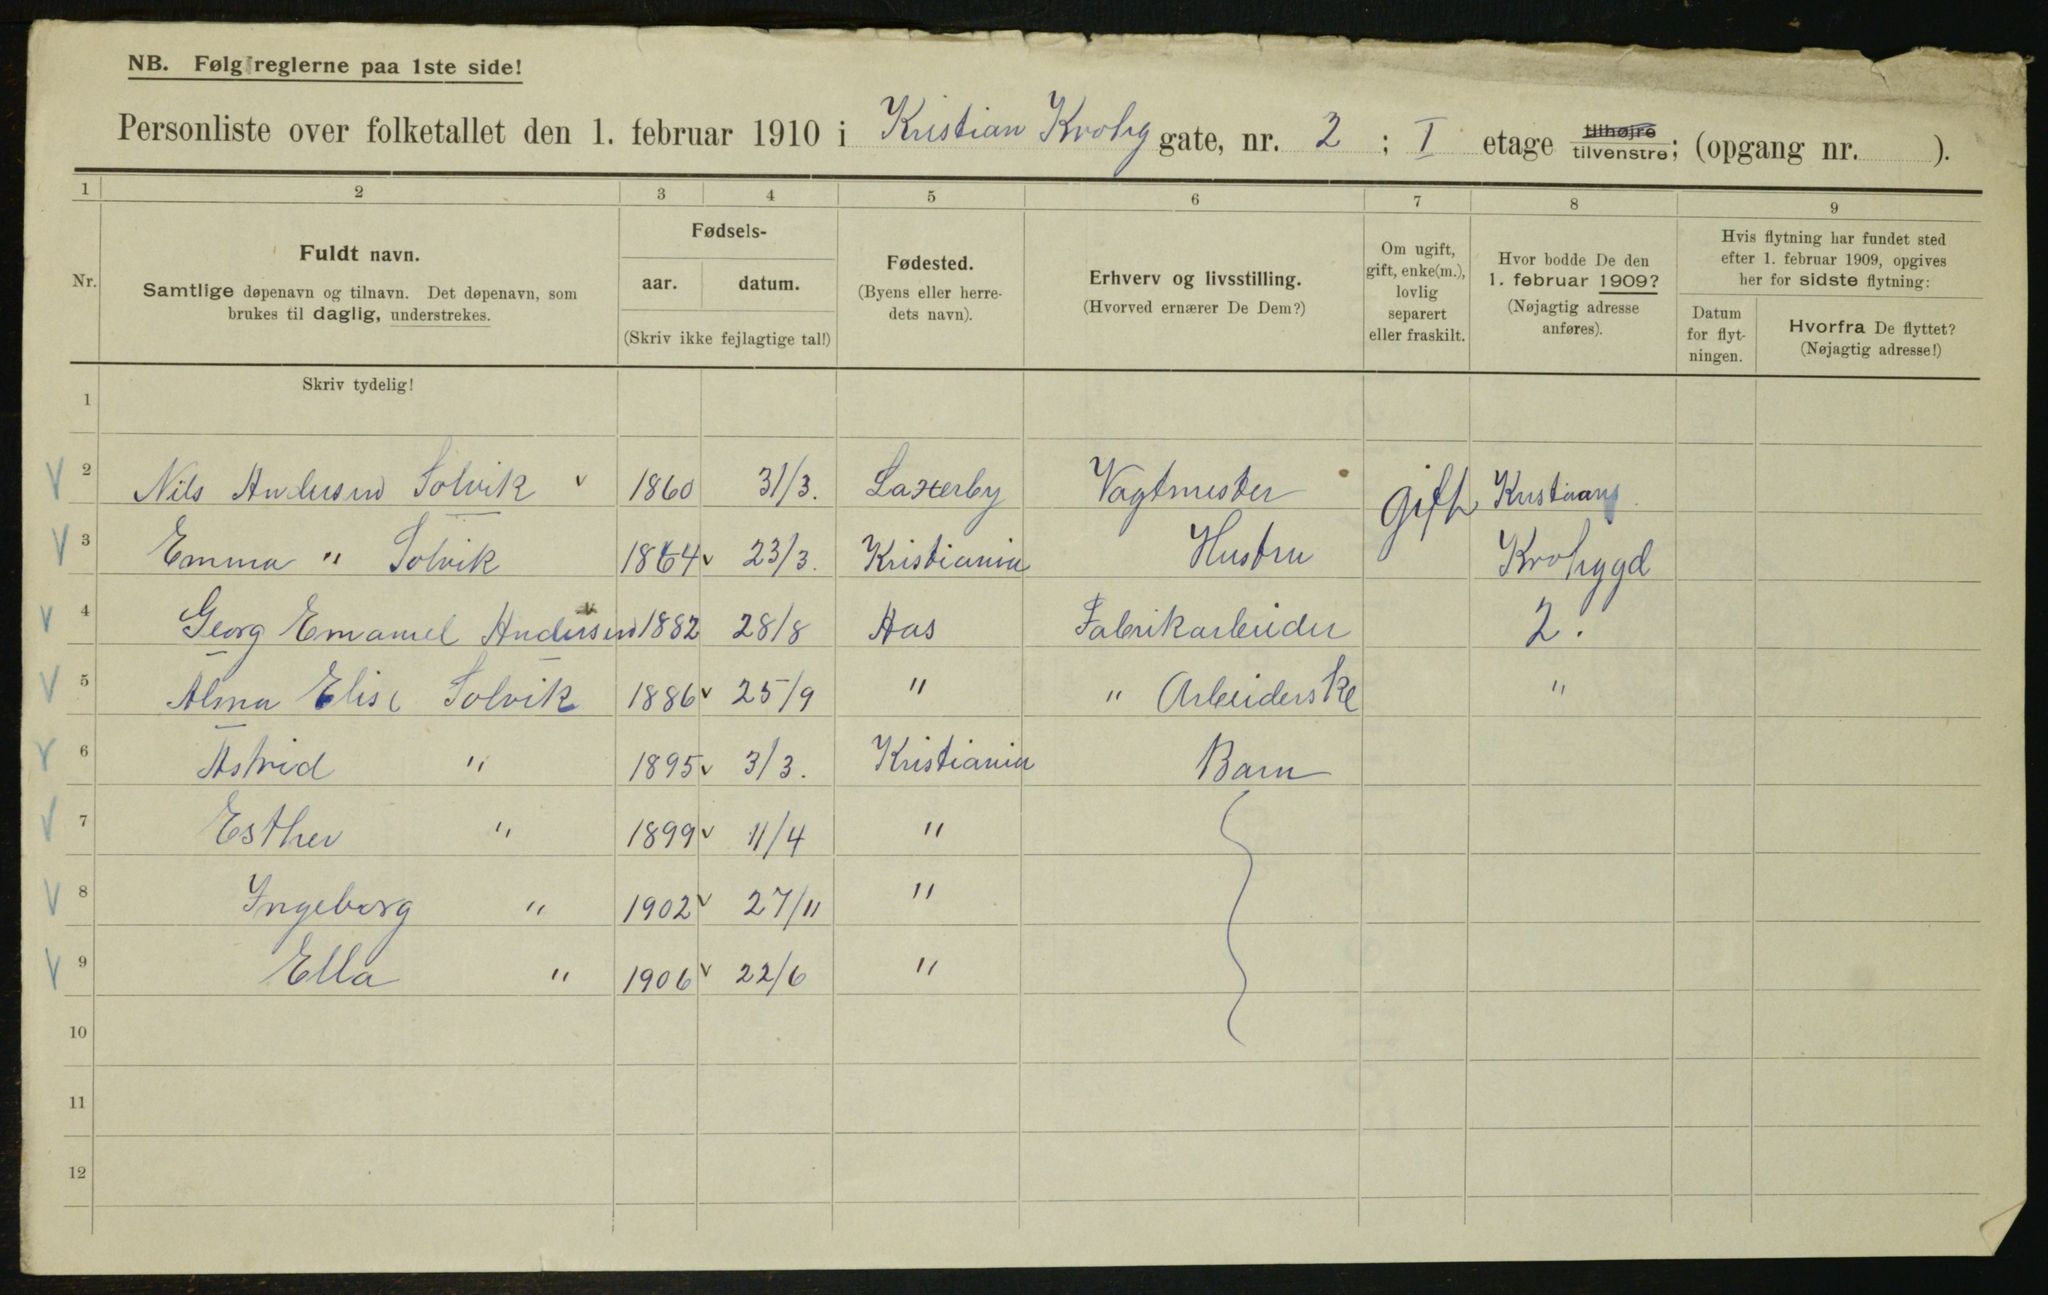 NB. Følg reglerne paa 1ste side!
Personliste over folketallet den 1. februar 1910 i Kristian Krohg gate, nr. 2 ; I etage tilhøjre tilvenstre; (opgang nr. ).
1 2 3 4 5 6 7 8 9
Nr. Fuldt navn. Samtlige døpenavn og tilnavn. Det døpenavn, som brukes til daglig, understrekes.
Fødsels- aar. datum. (Skriv ikke fejlagtige tal!)
Fødested. (Byens eller herredets navn).
Erhverv og livsstilling. (Hvorved ernærer De Dem?)
Om ugift, gift, enke(m.), lovlig separert eller fraskilt.
Hvor bodde De den 1. februar 1909? (Nøjagtig adresse anføres).
Hvis flytning har fundet sted efter 1. februar 1909, opgives her for sidste flytning:
Datum for flytningen. Hvorfra De flyttet? (Nøjagtig adresse!)
Skriv tydelig!
1
2 Nils Andersen Solvik 1860 31/3. Laxerby Vagtmester gift Kristians
3 Emma " Solvik 1864 23/3. Kristiania Hustru Krohggd
4 Georg Emanuel Andersen 1882 28/8 Aas Fabrikarbeider 2.
5 Alma Elise Solvik 1886 25/9 " " Arbeiderske "
6 Astrid " 1895 3/3. Kristiania Barn
7 Esther " 1899 11/4 "
8 Ingeborg " 1902 27/11 "
9 Ella " 1906 22/6 "
10
11
12